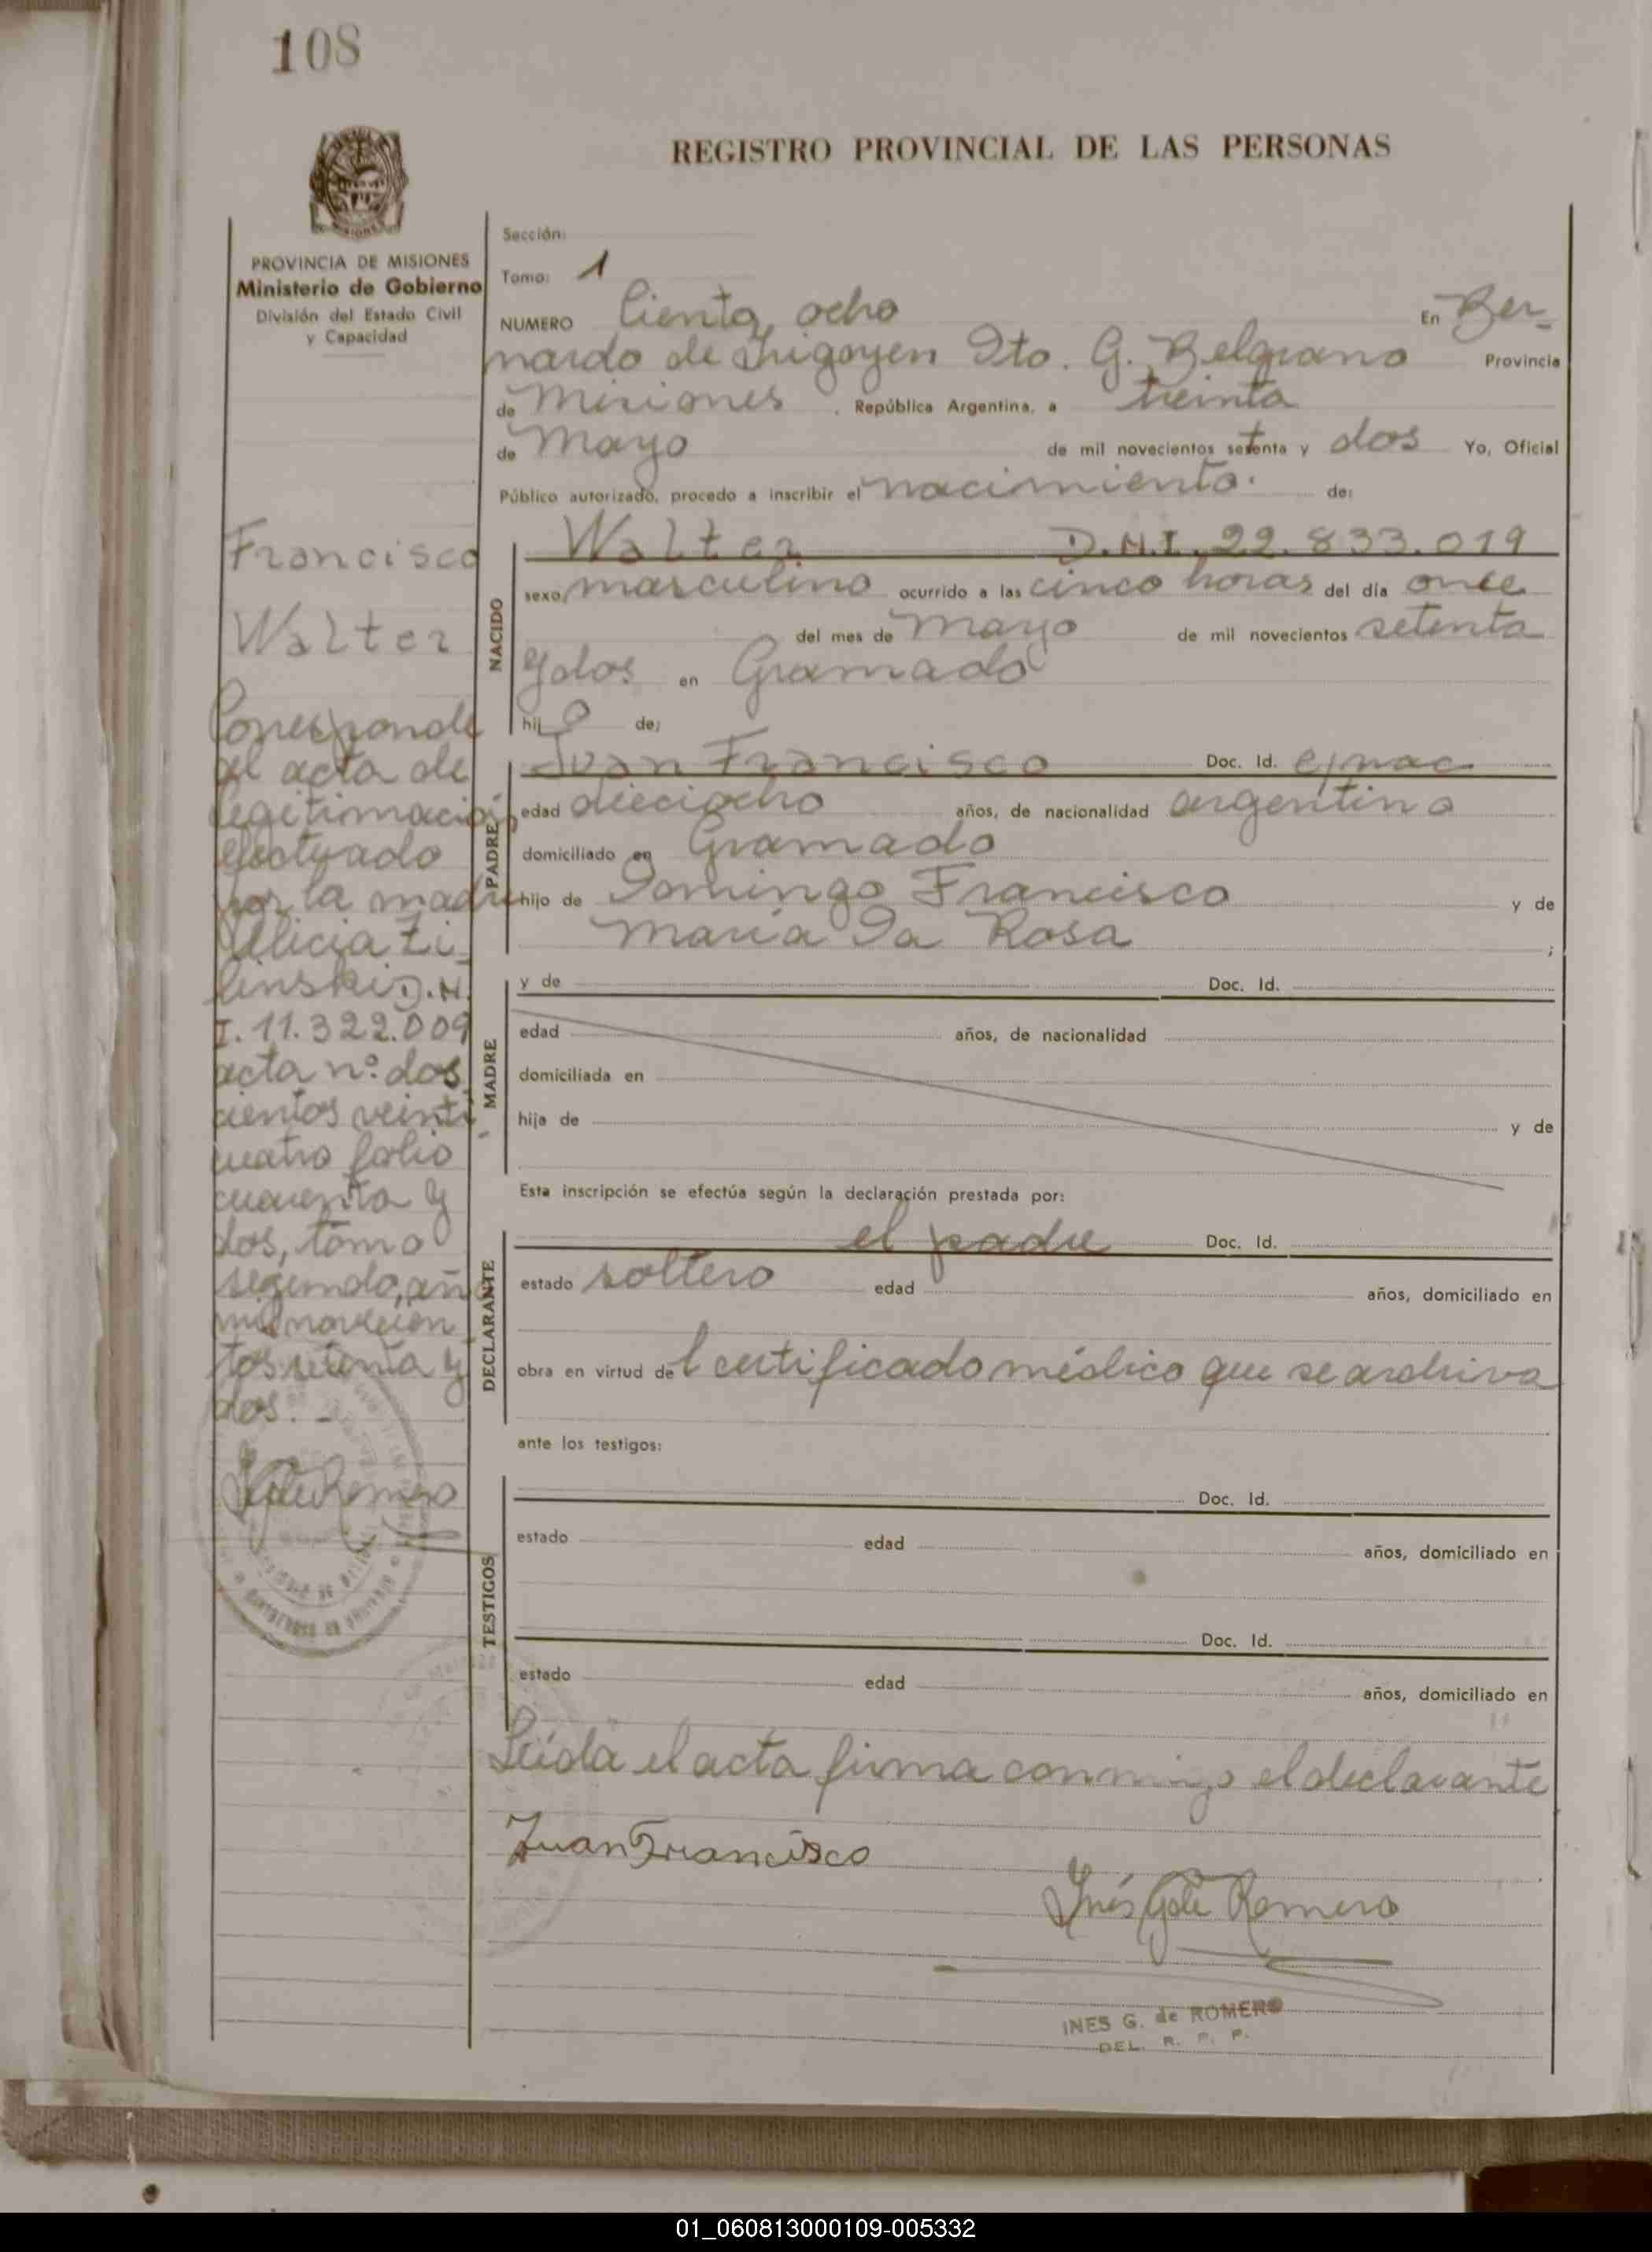 108
REGISTRO PROVINCIAL DE LAS PERSONAS
PROVINCIA DE MISIONES
Ministerio de Gobierno
División del Estado Civil
y Capacidad
Francisco
Walter
Corresponde
al acta de
legitimación
efectuado
por la madre
Alicia Zi-
linski D.N.
I. 11.322.009
acta nº: dos
cientos veinti
cuatro folio
cuarenta y
dos, tomo
segundo, año
mil novecien
tos setenta y
dos. -
Sección:
Tomo: 1
NUMERO Ciento ocho En Ber-
nardo de Irigoyen Dto. G. Belgrano Provincia
de Misiones, República Argentina, a treinta
de Mayo de mil novecientos setenta y dos Yo, Oficial
Público autorizado, procedo a inscribir el nacimiento. de:
NACIDO
Walter D.N.I. 22.833.019
sexo masculino ocurrido a las cinco horas del día once
del mes de Mayo de mil novecientos setenta
y dos en Gramado
hij o de:
PADRE
Juan Francisco Doc. Id.
edad dieciocho años, de nacionalidad argentino
domiciliado en Gramado
hijo de Domingo Francisco y de
María Da Rosa ;
MADRE
y de Doc. Id.
edad años, de nacionalidad
domiciliada en
hija de y de
Esta inscripción se efectúa según la declaración prestada por:
DECLARANTE
el padre Doc. Id.
estado soltero edad años, domiciliado en
obra en virtud del certificado médico que se archiva
ante los testigos:
TESTIGOS
Doc. Id.
estado edad años, domiciliado en
Doc. Id.
estado edad años, domiciliado en
Leída el acta firma conmigo el declarante
Juan Francisco
Inés G. de Romero
INES G. de ROMERO
DEL. R. P. P.
01_060813000109-005332